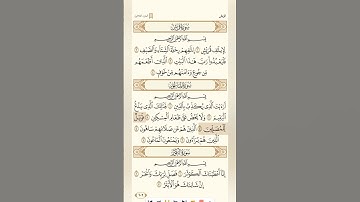 سُورَةُ قُرَيْشٍ
بِسْمِ اللَّهِ الرَّحْمَٰنِ الرَّحِيمِ
لِإِيلَافِ قُرَيْشٍ ١ إِيلَافِهِمْ رِحْلَةَ الشِّتَاءِ وَالصَّيْفِ ٢
فَلْيَعْبُدُوا رَبَّ هَٰذَا الْبَيْتِ ٣ الَّذِي أَطْعَمَهُم
مِّن جُوعٍ وَآمَنَهُم مِّنْ خَوْفٍ ٤
سُورَةُ الْمَاعُونِ
بِسْمِ اللَّهِ الرَّحْمَٰنِ الرَّحِيمِ
أَرَأَيْتَ الَّذِي يُكَذِّبُ بِالدِّينِ ١ فَذَٰلِكَ الَّذِي يَدُعُّ
الْيَتِيمَ ٢ وَلَا يَحُضُّ عَلَىٰ طَعَامِ الْمِسْكِينِ ٣ فَوَيْلٌ
لِّلْمُصَلِّينَ ٤ الَّذِينَ هُمْ عَن صَلَاتِهِمْ سَاهُونَ ٥
الَّذِينَ هُمْ يُرَاءُونَ ٦ وَيَمْنَعُونَ الْمَاعُونَ ٧
سُورَةُ الْكَوْثَرِ
بِسْمِ اللَّهِ الرَّحْمَٰنِ الرَّحِيمِ
إِنَّا أَعْطَيْنَاكَ الْكَوْثَرَ ١ فَصَلِّ لِرَبِّكَ وَانْحَرْ ٢
إِنَّ شَانِئَكَ هُوَ الْأَبْتَرُ ٣